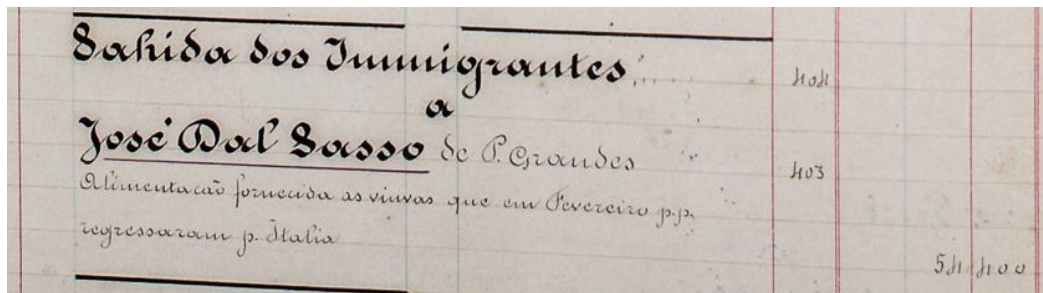 Sahida dos Immigrantes 404
a
José Dal Sasso de P. Grandes 403
Alimentacão fornecida as viuvas que em Fevereiro p.p.
regressaram p. Italia
54400